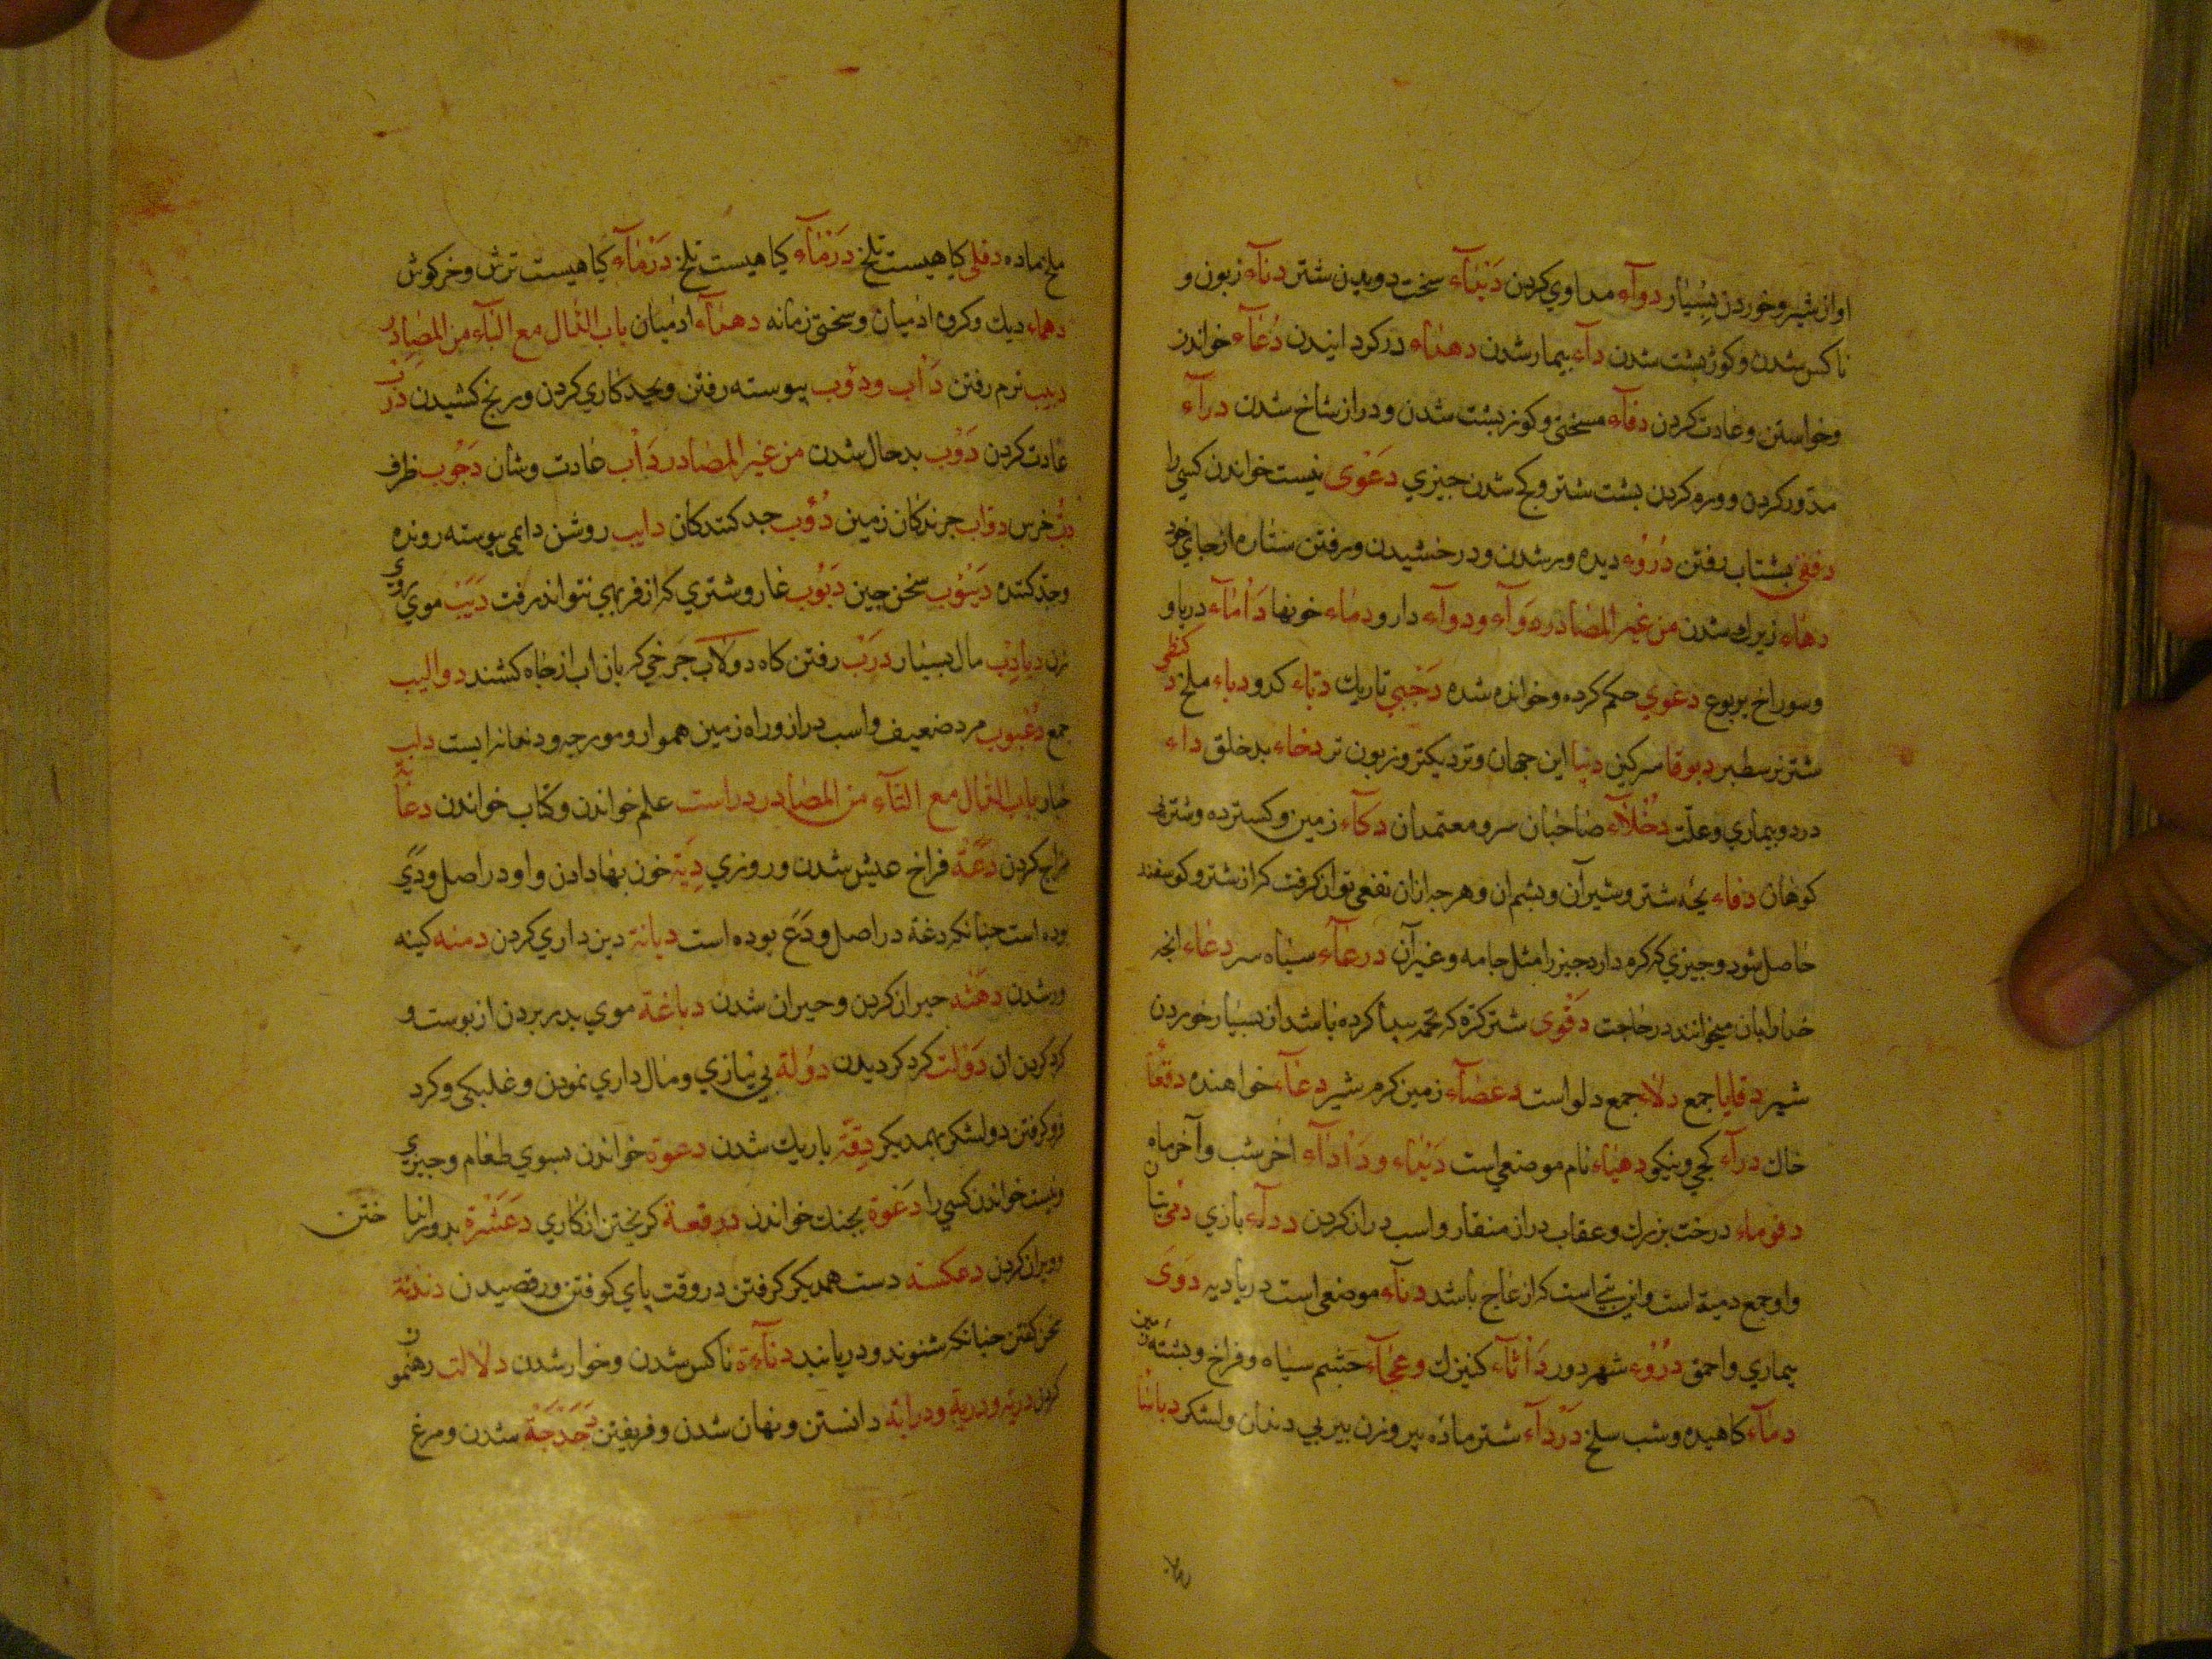 اواز شیر و خوردن بسیار دوآء مداوي کردن دَئدَاء سخت دویدن شتر دنآء زبون و
ناکس شدن و کوژ بشت شدن دآء بیمار شدن دهدَاء در کردانیدن دُعَآء خواندن
وخواستن و عادت کردن دفآء و کوز بشت شدن و دراز شاخ شدن درآء
مدّور کردن و ورم کردن بشت شتر و کج شدن جیزي دَعْوی نیست خواندن کسي را
بشتاب رفتن دُرُوْء دیده ور شدن و درخشیدن و رفتن ستاره از جاي خود
دهاء زیرك شدن من غیر المصادر دَوآء ودوآء دارو دماء خونها دَأمَاء دریا و
وسوراخ یربوع دعوي حکم کرده و خوانده شده دَجْیي تاریك دبّاء کدو دباء ملخ
شتر نر سطبر دبوقا سرکین دنیا این جهان ونزدیکتر وزبون تر دخاء بدخلق داء
درد و بیماري و علّت دُخَلَآء صاحبان سر و معتمدان دکآء زمین و کسترده و شتر بي
کوهان دفاء بجّه شتر و شیر آن و بشم ان و هرجه ازان نفعي توان کرفت کراز شتر و کوسفند
حاصل شود و جیزي که کرم دارد جیز را مثل جامه و غیر آن درعآء سیاه سر دعاء انجه
خداوابان میخوانند در حاجت دَقْوی شتر کرّه که تخمه پیدا کرده باشد از بسیار خوردن
شیر دقایا جمع دلاء جمع دلو است دعصَآء زمین کرم شیر دعّآء خواهنده دقعا
خاك درآء کجي و نیکو دهیاء نام موضعي است دَئدَاء و دَأدَآء اخر شب و آخر ماه
دفوماء درخت بزرك و عقاب دراز منقار و اسب دراز کردن ددآء بازي دمی
واو جمع دمیة است و این بتي است کراز عاج باشد دناء موضعي است در بادیه دَوَی
بیماري و احمق دُرُوْء شهر دور دَأثآء کنیزك وعجآء جشم سیاه و فراخ و بشته
دمَآء کاهیده و شب سلخ دَرْدآء شتر مادّه پیر و زن پیر بي دندان و لشکر
ملخ ماده دفلی کیاهیست تلخ دَرْمَآء کیاهیست تلخ دَرْمَآء کیاهیست ترش و خرکوش
دهماء دیك و کروه ادمیان و سختي زمانه دهنآء ادمیان باب الدّال مع البآء من المصادر
دبیب نرم رفتن دَأب و دؤب پیوسته رفتن و بجد کاري کردن و رنج کشیدن
عادت کردن دَوْب بدحال شدن من غیر المصادر دَأب عادت و شان دَجُوب ظرف
دبّ خرس دوّاب جرندکان زمین دُؤب جد کنندکان دایب روشن دایمي پیوسته رونده
وجدّ کننده دَیبُوب سخن جین دَبُوب غار و شتري که از فربهي نتواند رفت دَبَب موي
زن دبادب مال بسیار درَب رفتن کاه دولاب جرخي که بان اب از جاه کشند دوالیب
جمع دعبوب مرد ضعیف و اسب دراز و راه زمین هموار و مورجه و دنعانرایست داب
باب الدّال مع التآء من المصادر دراست علم خواندن و کتاب خواندن
مزاح کردن دَعَة فراخ عیش شدن و روزي دِیَة خون بها دادن واو در اصل ودي
بوده است جنانکه دعة در اصل ودع بوده است دیانة دین داري کردن دمنه کینه
ور شدن دهشه حیران کردن و حیران شدن دباغة موي بدر بردن از بوست و
کرد کردن ان دَوْلت کرد کردیدن دُولة بي نیازي و مال داري نمودن و غلبکي و کرد
فرو کرفتن دو لشکر بهمدیکر دِقّة باریك شدن دعوة خواندن بسوي طعام و جیزي
ونیست خواندن کسي را دَعْوة بجنك خواندن درقعة کریختن از کاري دَعْثَرَة بدور اندا ختن
وویران کردن دعکسه دست همدیکر کرفتن در وقت پاي کوفتن و رقصیدن دندنة
سخن کفتن جنانکه شنوند و در نیابند دنآءة ناکس شدن و خوار شدن دلالت رهنمون
کردن دریة و دریة ودرایة دانستن و نهان شدن و فریفتن دَجْدَجَة شدن و مرغ